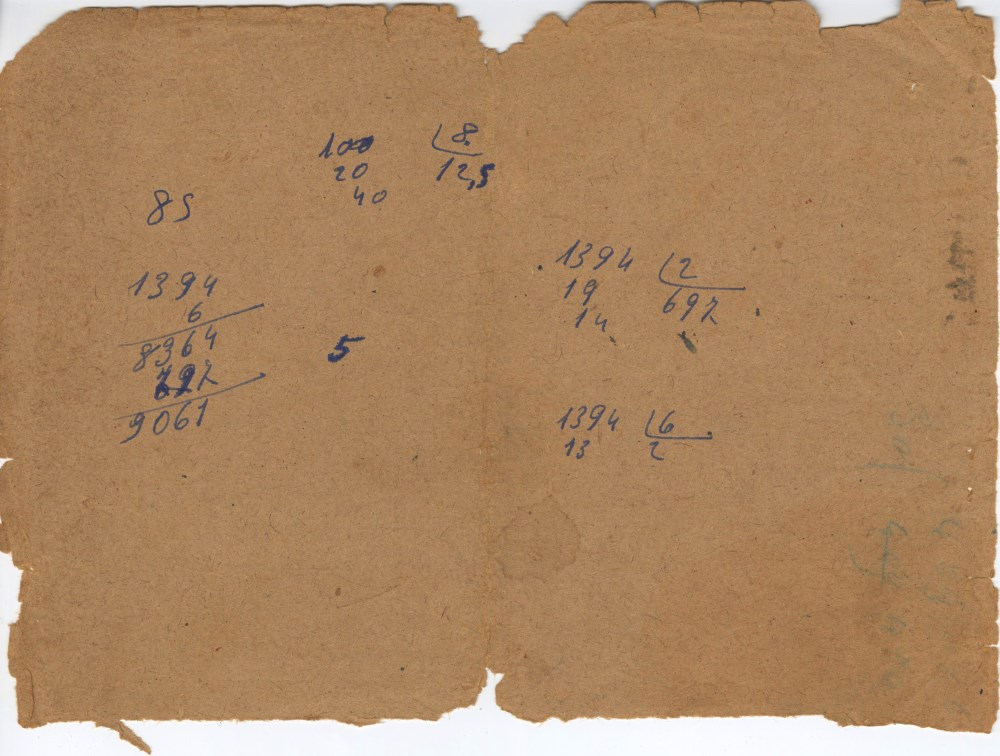 100 8
20 12,5
40
85
1394
6
8364
697
9061
5
1394 2
19 697
14
1394 6
13 2